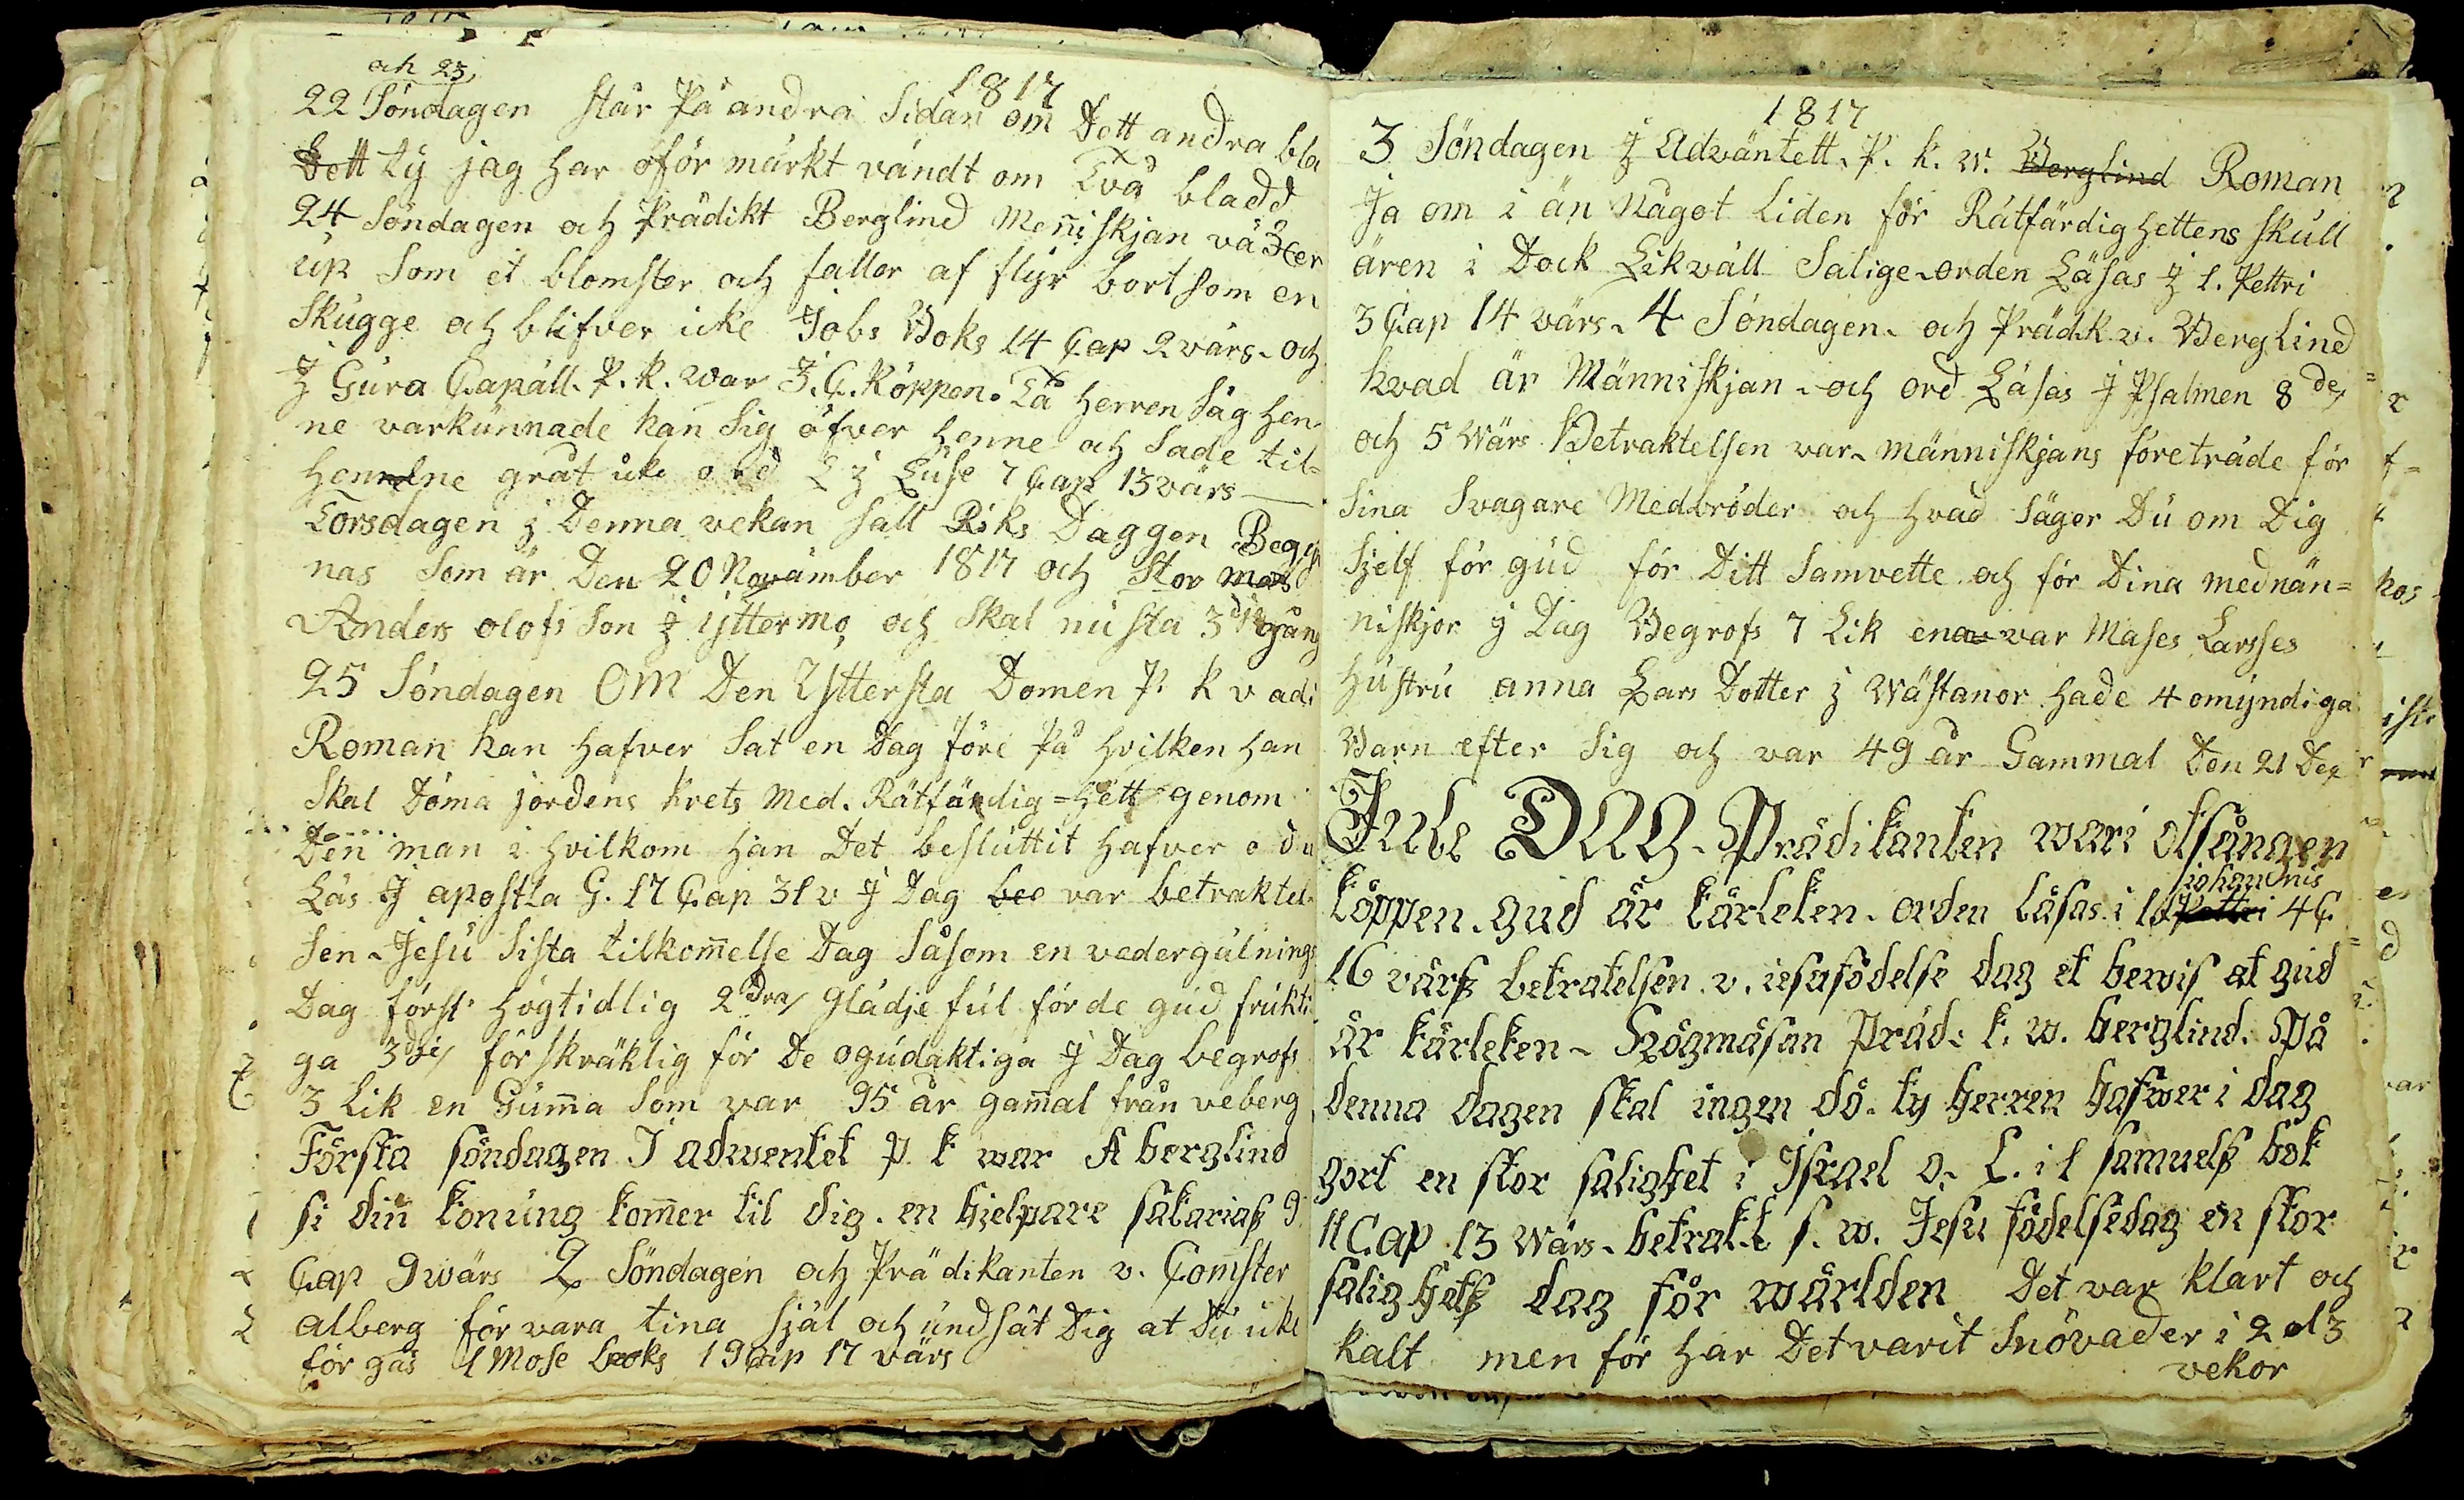 och 23,
1817
22 Söndagen står På andra Sidan om Dett andra bla
Dett ty jag har oför märkt vändt om Två bladd
24 Söndagen och Prädikt Berglind Menniskjan växer
up Som et blomster och faller af flyr bort som en
Skugge och blifver icke Jobs Boks 14 Cap 2 värs. och
J Gura Capäll. P. k. war J. C. Köppen. Tå Herren Såg hen-
ne varkunnade han Sig öfver henne och Sade til-
henne gråt icke ord L J Luse 7 Cap 13 värs
Torsdagen j Denna vekan Sall Riks Daggen Begy
nas Som är Den 20 Novämber 1817 och Stor mas
Anders olofs Son j yttermo och Skal nu sta 3die gång
25 Söndagen OM Den Yttersta Domen P. k v adj
Roman han hafver Sat en Dag före På hvilken han
Skal Döma jordens krets Med. Rätfärdig=hett genom
Den man i hvilkom han Det besluttit hafver o du
Läs J apostla G. 17 Cap 31 v J Dag bee var betraktel-
sen - Jesu Sista tilkommelse Dag Såsom en vedergälnings
Dag först högtidlig 2dra Glädje ful för de gud frukti
ga 3die för skräklig för De ogudaktiga J Dag begrofs
3 Lik en Gumma Som var 95 år gammal från veberg
Första söndagen I adwentet p k war A berglind
si din konung kommer til dig. en hjelpare sakariaß 9
Cap 9 wärs 2 Söndagen och Prädikanten v. Comster
alberg för vara tina Själ och undsät Dig at Du icke
för gås 1 Mose boks 19 Cap 17 värs
1817
3 Söndagen J Adväntett. P. k. w. Berglind Roman
Ja om i än Något Liden för Rätfärdighettens Skull
ären i Dock Likväll Salige - orden Läsas J 1. Pettri
3 Cap 14 värs. 4 Söndagen. och Präd.k v. Berglind
hvad är Människjan - och ord Läsas J Psalmen 8 de
och 5 Wärs Betraktelsen var - människjans företräde för
Sina Svagare Medbröder och hvad Säger Du om Dig
Sjelf för gud för Ditt Samvette och för Dina mednän=
niskjor J Dag Begrofs 7 Lik ena var Mases Larsses
Hustru anna Lars Dotter j Wästanor hade 4 omyndiga
Barn efter Sig och var 49 år Gammal Den 21 Dex
Jule DAG - Prädikanten wari otsången
Johannis
köppen. gud är kärleken. orden läsas. i 1 Pettri 4 C
16 värß betratelsen. v. iesu födelse dag et bewis at gud
är kärleken - Högmäsan präd: k. w. berglind. På
denna dagen skal ingen dö. ty herren hafwer i dag
gort en stor salighet i Israel o. L. i 1 samuelß bok
11 Cap 13 Wärs - betrakt s. w. Jesu födelsedag en stor
salighetß dag för wärlden Det var klart och
kalt men för har Det varit Snövader i 2 el 3
vekor